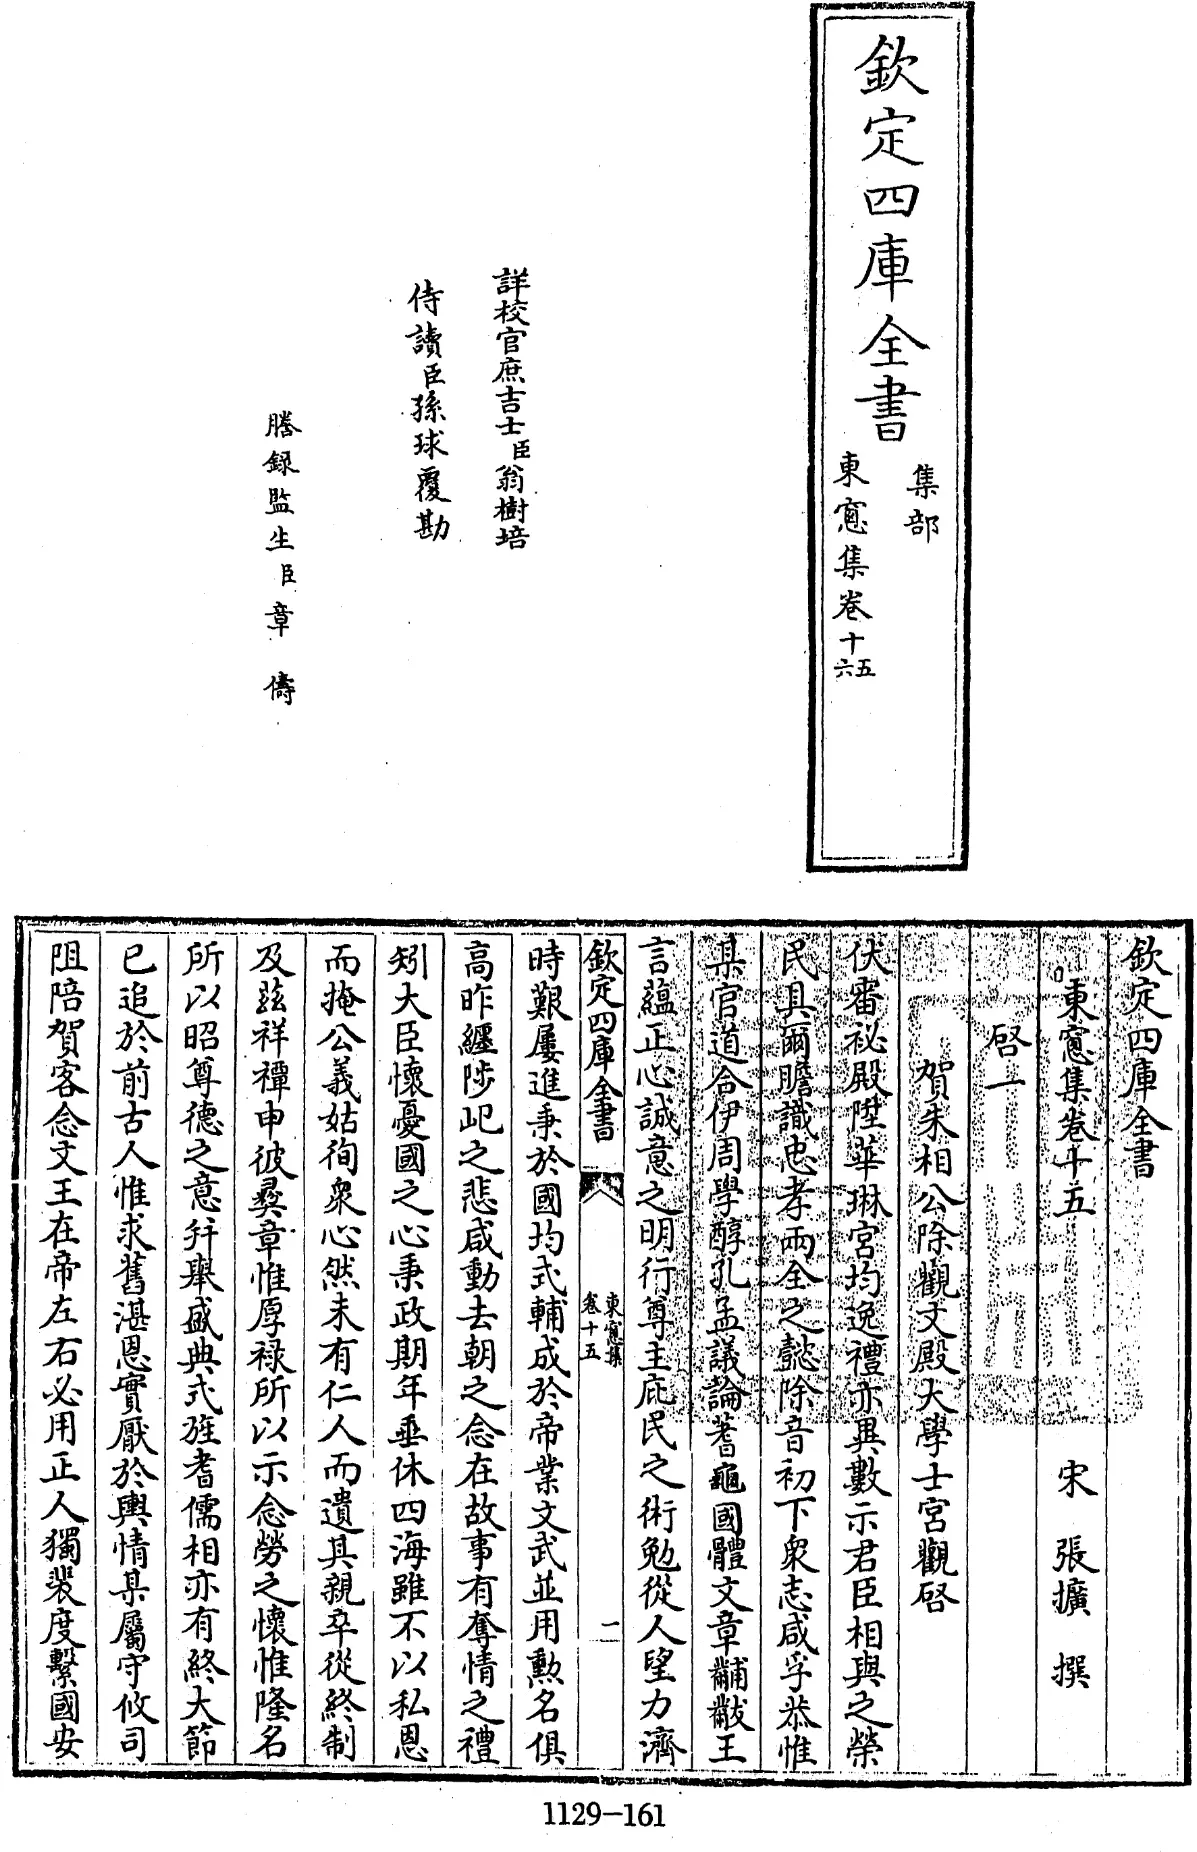 欽定四庫全書
集部
東窻集卷十五六
詳校官庶吉士臣翁樹培
侍讀臣孫球覆勘
謄録監生臣章儔
欽定四庫全書
東窻集卷十五
宋 張擴 撰
啓一
賀朱相公除觀文殿大學士宮觀啓
伏審祕殿陞華琳宮均逸禮亦異數示君臣相與之榮
民具爾瞻識忠孝兩全之懿除音初下衆志咸孚恭惟
某官道合伊周學醇孔孟議論蓍龜國體文章黼黻王
言蘊正心誠意之明行尊主庇民之術勉從人望力濟
欽定四庫全書
東窻集
卷十五
一
時艱屢進秉於國均式輔成於帝業文武並用勲名俱
高昨纒陟屺之悲咸動去朝之念在故事有奪情之禮
矧大臣懷憂國之心秉政期年垂休四海雖不以私恩
而掩公義姑徇衆心然未有仁人而遺其親卒從終制
及茲祥禫申彼彛章惟厚禄所以示念勞之懷惟隆名
所以昭尊德之意幷舉盛典式旌耆儒相亦有終大節
已追於前古人惟求舊湛恩實厭於輿情某屬守攸司
阻陪賀客念文王在帝左右必用正人獨裴度繫國安
1129-161